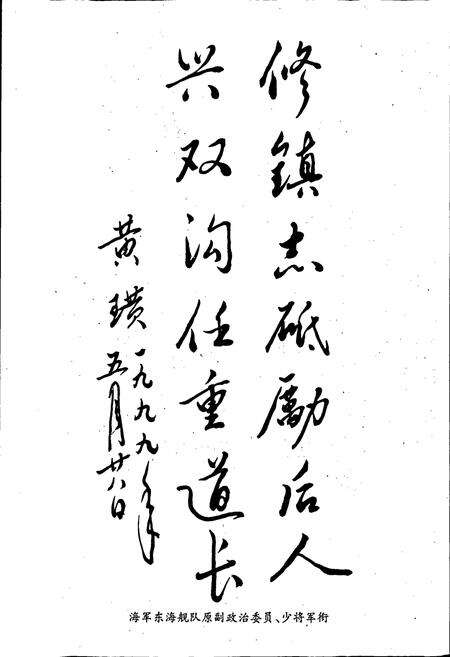 修鎮志砥勵后人
兴双沟任重道长
黄璜
一九九九年
五月廿八日
海军东海舰队原副政治委员、少将军衔